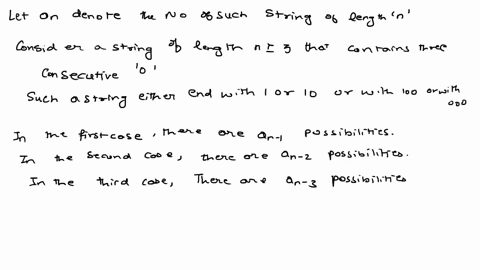 Let an denote the No of such String of length 'n'
Consider a string of length n ≥ 3 that contains three
Consecutive '0'
Such a string either end with 1 or 10 or with 100 or with
000
In the first case, there are an-1 possibilities.
In the second case, there are an-2 possibilities.
In the third case, There are an-3 possibilities